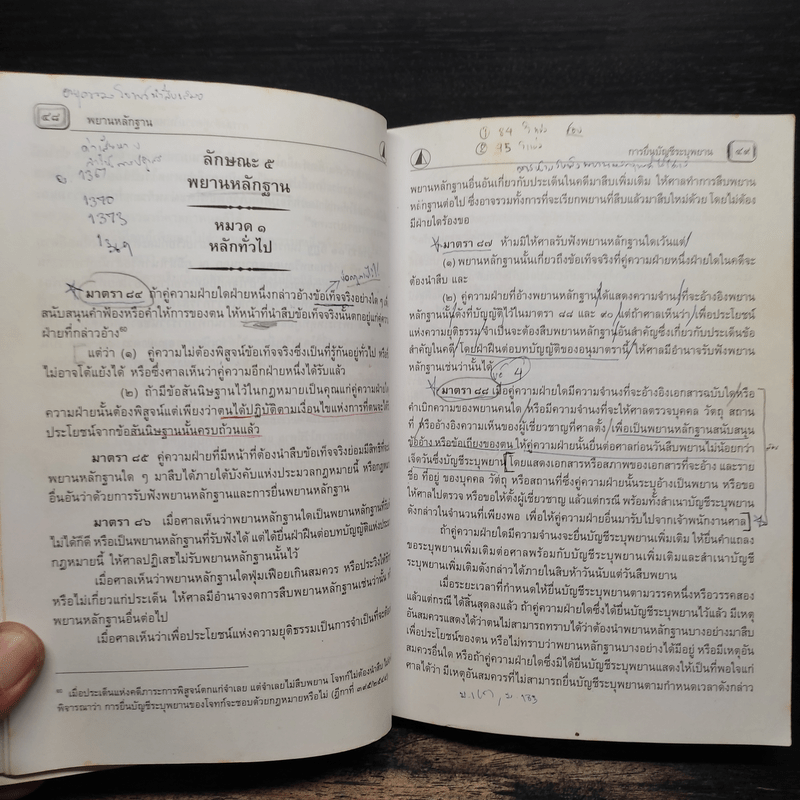 ๔๘ พยานหลักฐาน
ลักษณะ ๕
พยานหลักฐาน
หมวด ๑
หลักทั่วไป
1367
1370
1373
มาตรา ๘๔ ถ้าคู่ความฝ่ายใดฝ่ายหนึ่งกล่าวอ้างข้อเท็จจริงอย่างใด ๆ เพื่อ
สนับสนุนคำฟ้องหรือคำให้การของตน ให้หน้าที่นำสืบข้อเท็จจริงนั้นตกอยู่แก่คู่ความ
ฝ่ายที่กล่าวอ้าง
แต่ว่า (๑) คู่ความไม่ต้องพิสูจน์ข้อเท็จจริงซึ่งเป็นที่รู้กันอยู่ทั่วไป หรือ
ไม่อาจโต้แย้งได้ หรือซึ่งศาลเห็นว่าคู่ความอีกฝ่ายหนึ่งได้รับแล้ว
(๒) ถ้ามีข้อสันนิษฐานไว้ในกฎหมายเป็นคุณแก่คู่ความฝ่ายใด
ความฝ่ายนั้นต้องพิสูจน์แต่เพียงว่าตนได้ปฏิบัติตามเงื่อนไขแห่งการที่ตนจะได้
ประโยชน์จากข้อสันนิษฐานนั้นครบถ้วนแล้ว
มาตรา ๘๕ คู่ความฝ่ายที่มีหน้าที่ต้องนำสืบข้อเท็จจริงย่อมมีสิทธิที่จะ
พยานหลักฐานใด ๆ มาสืบได้ภายใต้บังคับแห่งประมวลกฎหมายนี้ หรือกฎหมาย
อื่นอันว่าด้วยการรับฟังพยานหลักฐานและการยื่นพยานหลักฐาน
มาตรา ๘๖ เมื่อศาลเห็นว่าพยานหลักฐานใดเป็นพยานหลักฐานที่รับฟัง
ไม่ได้ก็ดี หรือเป็นพยานหลักฐานที่รับฟังได้ แต่ได้ยื่นฝ่าฝืนต่อบทบัญญัติแห่งประมวล
กฎหมายนี้ ให้ศาลปฏิเสธไม่รับพยานหลักฐานนั้นไว้
เมื่อศาลเห็นว่าพยานหลักฐานใดฟุ่มเฟือยเกินสมควร หรือประวิงให้ชักช้า
หรือไม่เกี่ยวแก่ประเด็น ให้ศาลมีอำนาจงดการสืบพยานหลักฐานเช่นว่านั้น
พยานหลักฐานอื่นต่อไป
เมื่อศาลเห็นว่าเพื่อประโยชน์แห่งความยุติธรรมเป็นการจำเป็นที่จะต้อง
เมื่อประเด็นแห่งคดีภาระการพิสูจน์ตกแก่จำเลย แต่จำเลยไม่สืบพยาน โจทก์ไม่ต้องนำสืบ
พิจารณาว่า การยื่นบัญชีระบุพยานของโจทก์จะชอบด้วยกฎหมายหรือไม่
การยื่นบัญชีระบุพยาน ๔๙
พยานหลักฐานอื่นอันเกี่ยวกับประเด็นในคดีมาสืบเพิ่มเติม ให้ศาลทำการสืบพยาน
หลักฐานต่อไป ซึ่งอาจรวมทั้งการที่จะเรียกพยานที่สืบแล้วมาสืบใหม่ด้วย โดยไม่ต้อง
มีฝ่ายใดร้องขอ
มาตรา ๘๗ ห้ามมิให้ศาลรับฟังพยานหลักฐานใดเว้นแต่
(๑) พยานหลักฐานนั้นเกี่ยวถึงข้อเท็จจริงที่คู่ความฝ่ายหนึ่งฝ่ายใดในคดีจะ
ต้องนำสืบ และ
(๒) คู่ความฝ่ายที่อ้างพยานหลักฐานได้แสดงความจำนงที่จะอ้างอิงพยาน
หลักฐานนั้นดังที่บัญญัติไว้ในมาตรา ๘๘ และ ๙๐ แต่ถ้าศาลเห็นว่าเพื่อประโยชน์
แห่งความยุติธรรม จำเป็นจะต้องสืบพยานหลักฐานอันสำคัญซึ่งเกี่ยวกับประเด็นข้อ
สำคัญในคดี โดยฝ่าฝืนต่อบทบัญญัติของอนุมาตรานี้ ให้ศาลมีอำนาจรับฟังพยาน
หลักฐานเช่นว่านั้นได้
มาตรา ๘๘ เมื่อคู่ความฝ่ายใดมีความจำนงที่จะอ้างอิงเอกสารฉบับใดหรือ
คำเบิกความของพยานคนใด หรือมีความจำนงที่จะให้ศาลตรวจบุคคล วัตถุ สถาน
ที่ หรืออ้างอิงความเห็นของผู้เชี่ยวชาญที่ศาลตั้ง เพื่อเป็นพยานหลักฐานสนับสนุน
ข้ออ้างหรือข้อเถียงของตน ให้คู่ความฝ่ายนั้นยื่นต่อศาลก่อนวันสืบพยานไม่น้อยกว่า
เจ็ดวันซึ่งบัญชีระบุพยาน โดยแสดงเอกสารหรือสภาพของเอกสารที่จะอ้าง และราย
ชื่อ ที่อยู่ ของบุคคล วัตถุ หรือสถานที่ซึ่งคู่ความฝ่ายนั้นระบุอ้างเป็นพยาน หรือขอ
ให้ศาลไปตรวจ หรือขอให้ตั้งผู้เชี่ยวชาญ แล้วแต่กรณี พร้อมทั้งสำเนาบัญชีระบุพยาน
ดังกล่าวในจำนวนที่เพียงพอ เพื่อให้คู่ความฝ่ายอื่นมารับไปจากเจ้าพนักงานศาล
ถ้าคู่ความฝ่ายใดมีความจำนงจะยื่นบัญชีระบุพยานเพิ่มเติม ให้ยื่นคำแถลง
ขอระบุพยานเพิ่มเติมต่อศาลพร้อมกับบัญชีระบุพยานเพิ่มเติมและสำเนาบัญชี
ระบุพยานเพิ่มเติมดังกล่าวได้ภายในสิบห้าวันนับแต่วันสืบพยาน
เมื่อระยะเวลาที่กำหนดให้ยื่นบัญชีระบุพยานตามวรรคหนึ่งหรือวรรคสอง
แล้วแต่กรณี ได้สิ้นสุดลงแล้ว ถ้าคู่ความฝ่ายใดซึ่งได้ยื่นบัญชีระบุพยานไว้แล้ว มีเหตุ
อันสมควรแสดงได้ว่าตนไม่สามารถทราบได้ว่าต้องนำพยานหลักฐานบางอย่างมาสืบ
เพื่อประโยชน์ของตน หรือไม่ทราบว่าพยานหลักฐานบางอย่างได้มีอยู่ หรือมีเหตุอัน
สมควรอื่นใด หรือถ้าคู่ความฝ่ายใดซึ่งมิได้ยื่นบัญชีระบุพยานแสดงให้เป็นที่พอใจแก่
ศาลได้ว่า มีเหตุอันสมควรที่ไม่สามารถยื่นบัญชีระบุพยานตามกำหนดเวลาดังกล่าว